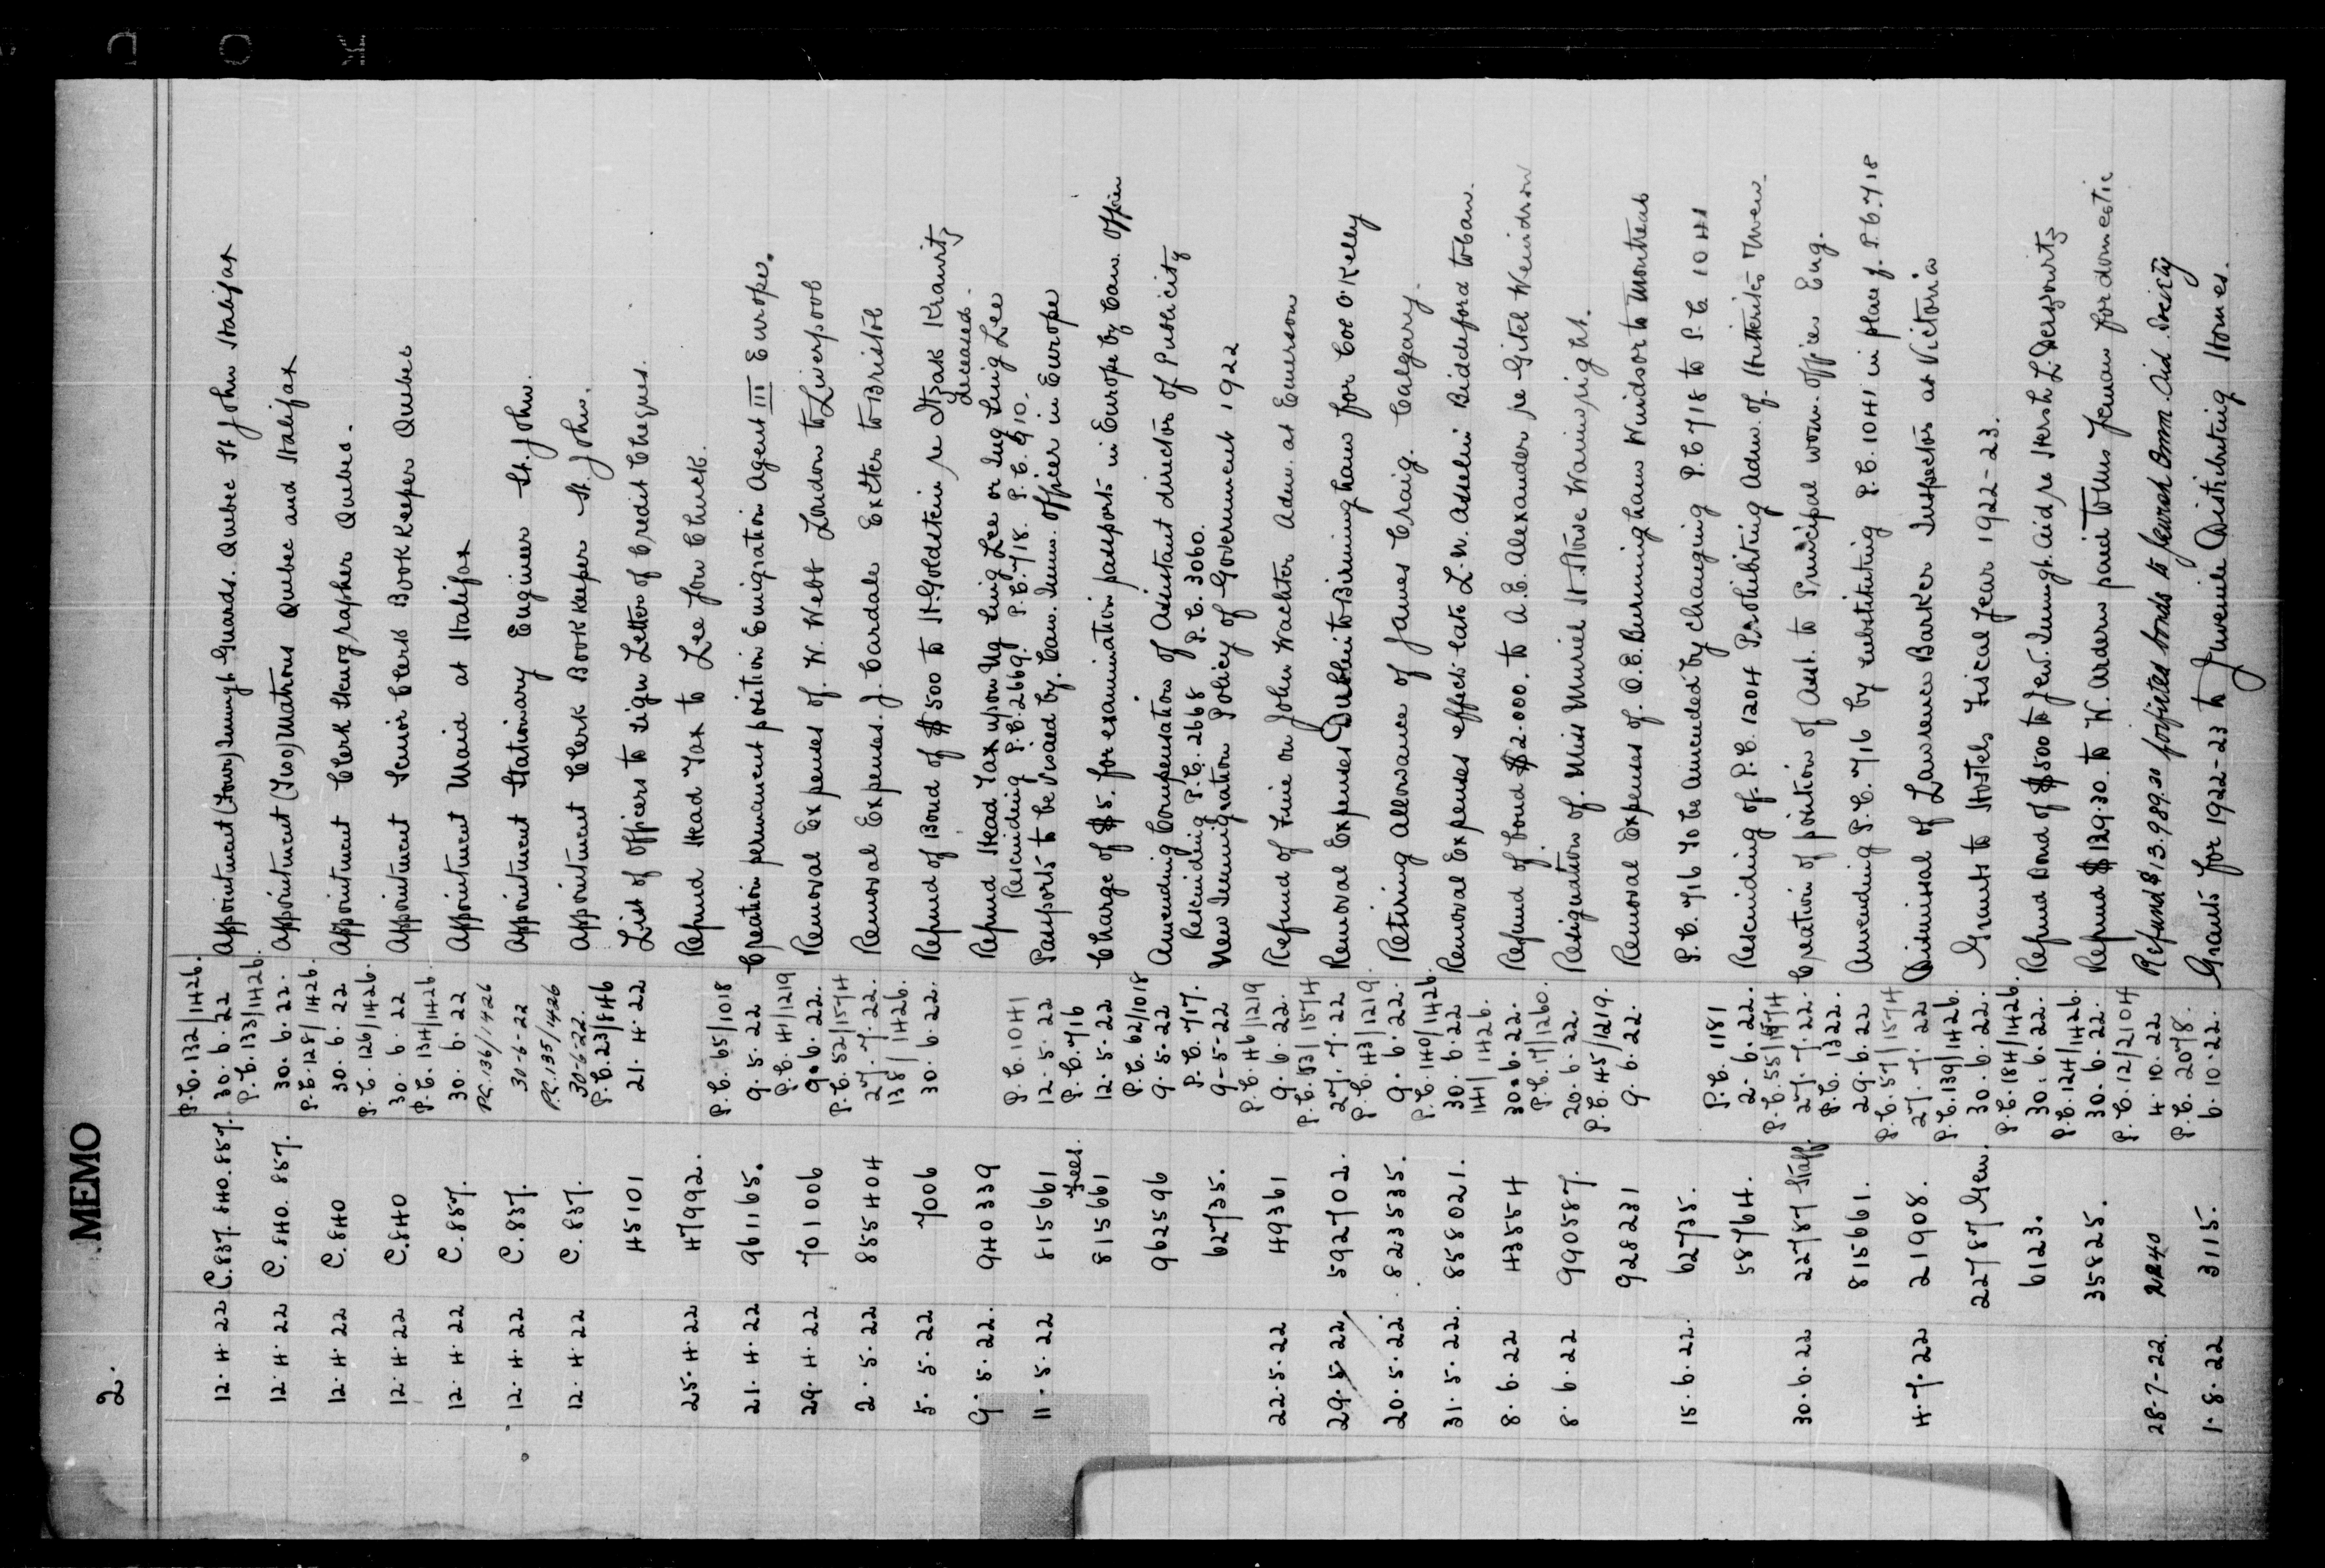 MEMO
2.
P.C. 132/1426.
12.4.22 C.837. 840. 857. 30.6.22 Appointment (Four) Immigt Guards. Quebec St John Halifax
P.C. 133/1426.
12.4.22 C.840. 857. 30.6.22. Appointment (Two) Matrons Quebec and Halifax
P.C. 128/1426.
12.4.22 C.840 30.6.22 Appointment Clerk Stenographer Quebec.
P.C. 126/1426.
12.4.22 C.840 30.6.22 Appointment Senior Clerk Book Keeper Quebec
P.C. 134/1426.
12.4.22 C.857. 30.6.22 Appointment Maid at Halifax
P.C. 136/1426
12.4.22 C.837. 30-6-22 Appointment Stationary Engineer St. John.
P.C. 135/1426
12.4.22 C.837. 30-6-22. Appointment Clerk Book Keeper St. John.
P.C. 23/846
45101 21.4.22 List of Officers to sign Letter of Credit Cheques.
25.4.22 47992. Refund Head Tax to Lee Jow Chuck.
P.C. 65/1018
21.4.22 961165. 9.5.22 Creation permanent position Emigration Agent III Europe.
P.C. 41/1219
29.4.22 701006 9.6.22. Removal Expenses of W. Webb London to Liverpool
P.C. 52/1574
2.5.22 855404 27.7.22. Removal Expenses. J. Cardale Exeter to Bristol
138/1426.
5.5.22 7006 30.6.22. Refund of Bond of $500 to H. Goldstein re Itzak Kravitz
deceased.
9.5.22. 940339 Refund Head Tax upon Ng Ling Lee or Ing Ling Lee
P.C. 1041 Rescinding P.C. 2669. P.C. 718. P.C. 910.
11.5.22 815661 12.5.22 Passports to be Visaed by Can. Imm. Officer in Europe
Fees. P.C. 716
815661 12.5.22 Charge of $5. for examination passports in Europe by Can. Officer
P.C. 62/1018
962596 9.5.22 Amending Compensation of Assistant director of Publicity
P.C. 717. Rescinding P.C. 2668 P.C. 3060.
62735. 9-5-22 New Immigration Policy of Government 1922
P.C. 46/1219
22.5.22 49361 9.6.22. Refund of Fine on John Wachter Adm. at Emerson
P.C. 53/1574
29.5.22 592702. 27.7.22 Removal Expenses Dublin to Birmingham for Coe O'Kelly
P.C. 43/1219.
20.5.22. 823535. 9.6.22. Retiring Allowance of James Craig. Calgary.
P.C. 140/1426.
31.5.22. 858021. 30.6.22 Removal Expenses effects late L.N. Asselin Biddeford to Can.
141/1426.
8.6.22 43554 30.6.22. Refund of bond $2.000. to A.E. Alexander re Gitel
P.C. 17/1260.
8.6.22 990587. 20.6.22. Resignation of Miss Muriel H. Stowe Wainwright.
P.C. 45/1219.
928231 9.6.22. Removal Expenses of O.E. Burningham Windsor to Montreal
15.6.22. 62735. P.C. 716 to be Amended by changing P.C. 718 to P.C. 1041
P.C. 1181
58764. 2.6.22. Rescinding of P.C. 1204 Prohibiting Adm. of Hutterites
P.C. 55/1574
30.6.22 22787 Staff. 27.7.22. Creation of position of Asst. to Principal wom. Officer Eng.
P.C. 1322.
815661. 29.6.22 Amending P.C. 716 by substituting P.C. 1041 in place of P.C. 718
P.C. 57/1574
4.7.22 21908. 27.7.22 Dismissal of Lawrence Barker Inspector at Victoria
P.C. 139/1426.
22787 Gen. 30.6.22. Grants to Hostels Fiscal year 1922-23.
P.C. 184/1426.
6123. 30.6.22. Refund Bond of $500 to Jew. Immigt. Aid, re Hersh L.
P.C. 124/1426.
35825. 30.6.22. Refund $129.30. to W. Ardern paid to Miss for domestic
P.C. 12/2104
28-7-22. 2240 4.10.22 Refund $13.989.30 forfeited bonds to Jewish Imm. Aid Society
P.C. 2078.
1.8.22 3115. 6.10.22. Grants for 1922-23 to Juvenile Distributing Homes.